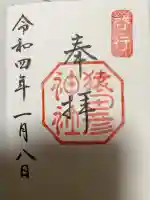 啓行
奉拝
猿田彦神社
令和四年一月八日